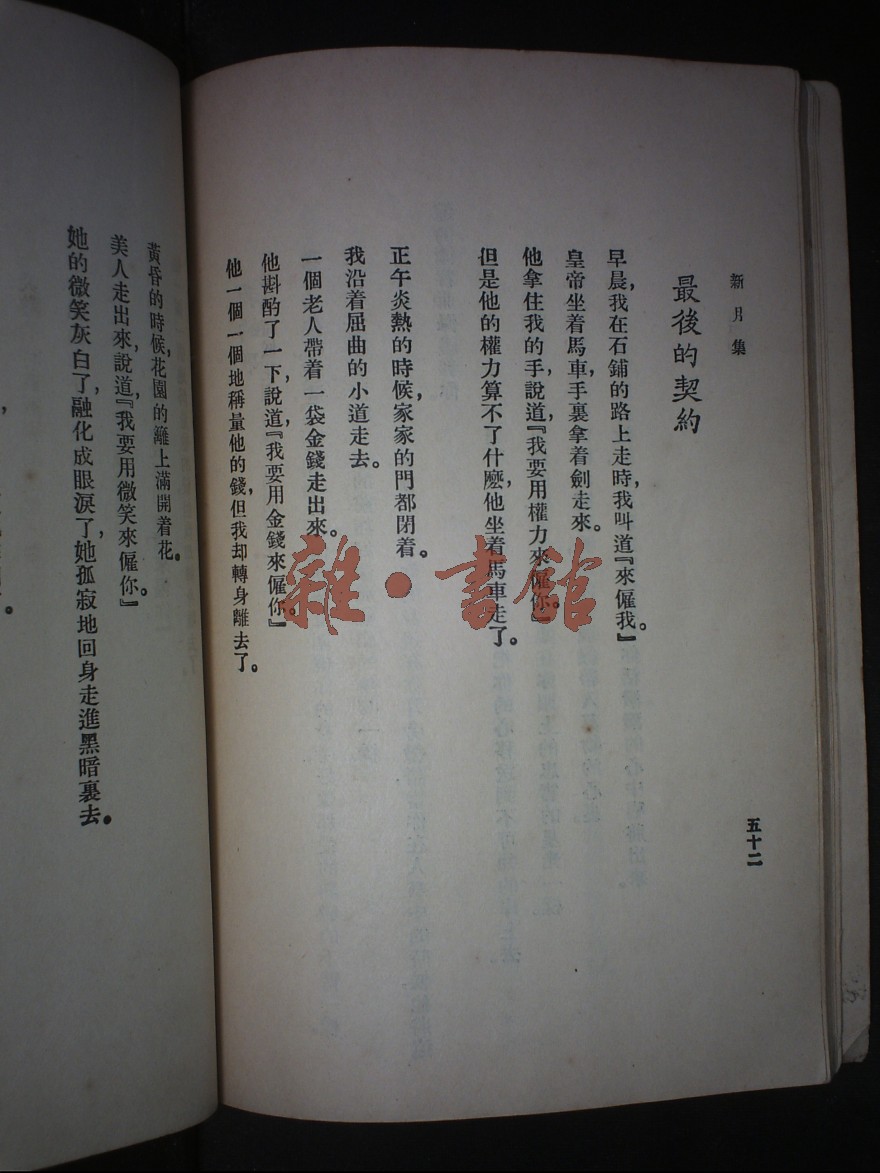 新月集
最後的契約
早晨，我在石鋪的路上走時，我叫道『來僱我。』
皇帝坐着馬車，手裏拿着劍走來。
他拿住我的手，說道，『我要用權力來僱你。』
但是他的權力算不了什麽，他坐着馬車走了。
正午炎熱的時候，家家的門都閉着。
我沿着屈曲的小道走去。
一個老人帶着一袋金錢走出來。
他斟酌了一下，說道，『我要用金錢來僱你。』
他一個一個地稱量他的錢，但我却轉身離去了。
五十二
黃昏的時候，花園的籬上滿開着花。
美人走出來，說道，『我要用微笑來僱你。』
她的微笑灰白了，融化成眼淚了，她孤寂地回身走進黑暗裏去。
雜·書館